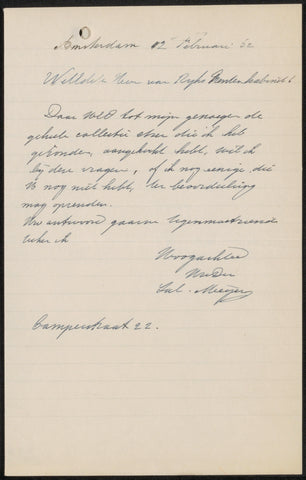 Amsterdam 12 Februari 32
Weledele Heer van Rijks Prentenkabinet
Daar UEd tot mijn genoegen de
geheele collectie etsen die ik heb
gezonden, aangekocht hebt, wil ik
bij dezen vragen, of ik nog eenige, die
U nog niet hebt, ter beoordeeling
mag opzenden.
Uw antwoord gaarne tegemoetziende
teken ik
Hoogachtend
Uw Dw
Sal. Meijer
Camperstraat 22.